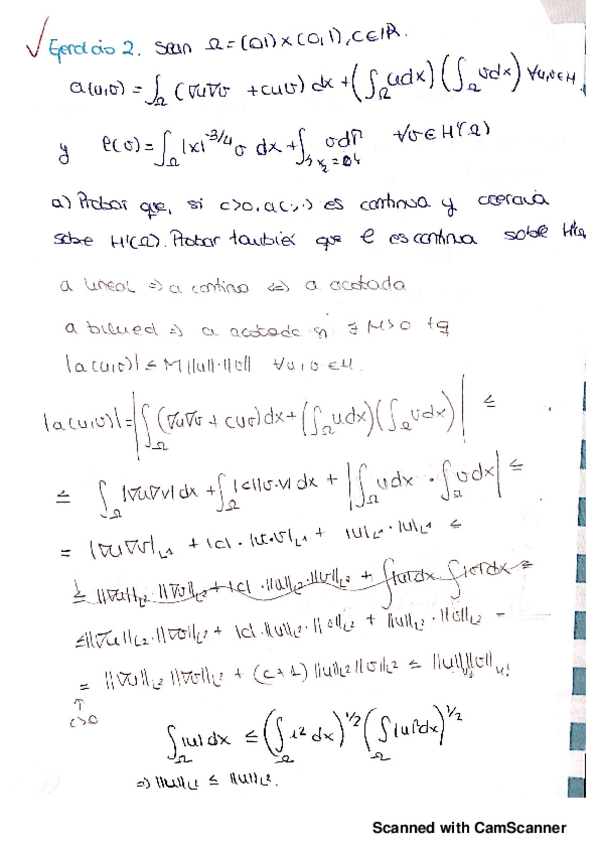 ✓ Ejercicio 2. Sean Ω = (0,1) × (0,1), c ∈ ℝ.
a(u,v) = ∫_Ω (∇u∇v + cuv) dx + (∫_Ω u dx)(∫_Ω v dx) ∀u,v∈H,
y ℓ(v) = ∫_Ω |x|^{-3/4} v dx + ∫ v dΓ ∀v ∈ H¹(Ω)
a) Probar que, si c>0, a(·,·) es continua y coerciva
sobre H¹(Ω). Probar también que ℓ es continua sobre
a lineal ⇒ a continua ⇔ a acotada
a bilineal ⇒ a acotada si ∃ M>0 tq
|a(u,v)| ≤ M ||u||·||v|| ∀u,v ∈ H.
|a(u,v)| = |∫_Ω (∇u∇v + cuv) dx + (∫_Ω u dx)(∫_Ω v dx)| ≤
≤ ∫_Ω |∇u∇v| dx + ∫_Ω |c||u·v| dx + |∫_Ω u dx · ∫_Ω v dx| ≤
= |∇u∇v|_{L¹} + |c|·|u·v|_{L¹} + |u|_{L¹}·|u|_{L¹} ≤
≤ ||∇u||_{L²}·||∇v||_{L²} + |c|·||u||_{L²}·||v||_{L²} + ∫|u|dx ∫|v|dx ≤
≤ ||∇u||_{L²}·||∇v||_{L²} + |c|·||u||_{L²}·||v||_{L²} + ||u||_{L²}·||v||_{L²} =
= ||∇u||_{L²} ||∇v||_{L²} + (c+1) ||u||_{L²} ||v||_{L²} ≤ ||u|| ||v||_{H¹}
↑
c>0
∫_Ω |u| dx ≤ (∫_Ω 1² dx)^{1/2} (∫_Ω |u|² dx)^{1/2}
⇒ ||u||_{L¹} ≤ ||u||_{L²}.
Scanned with CamScanner